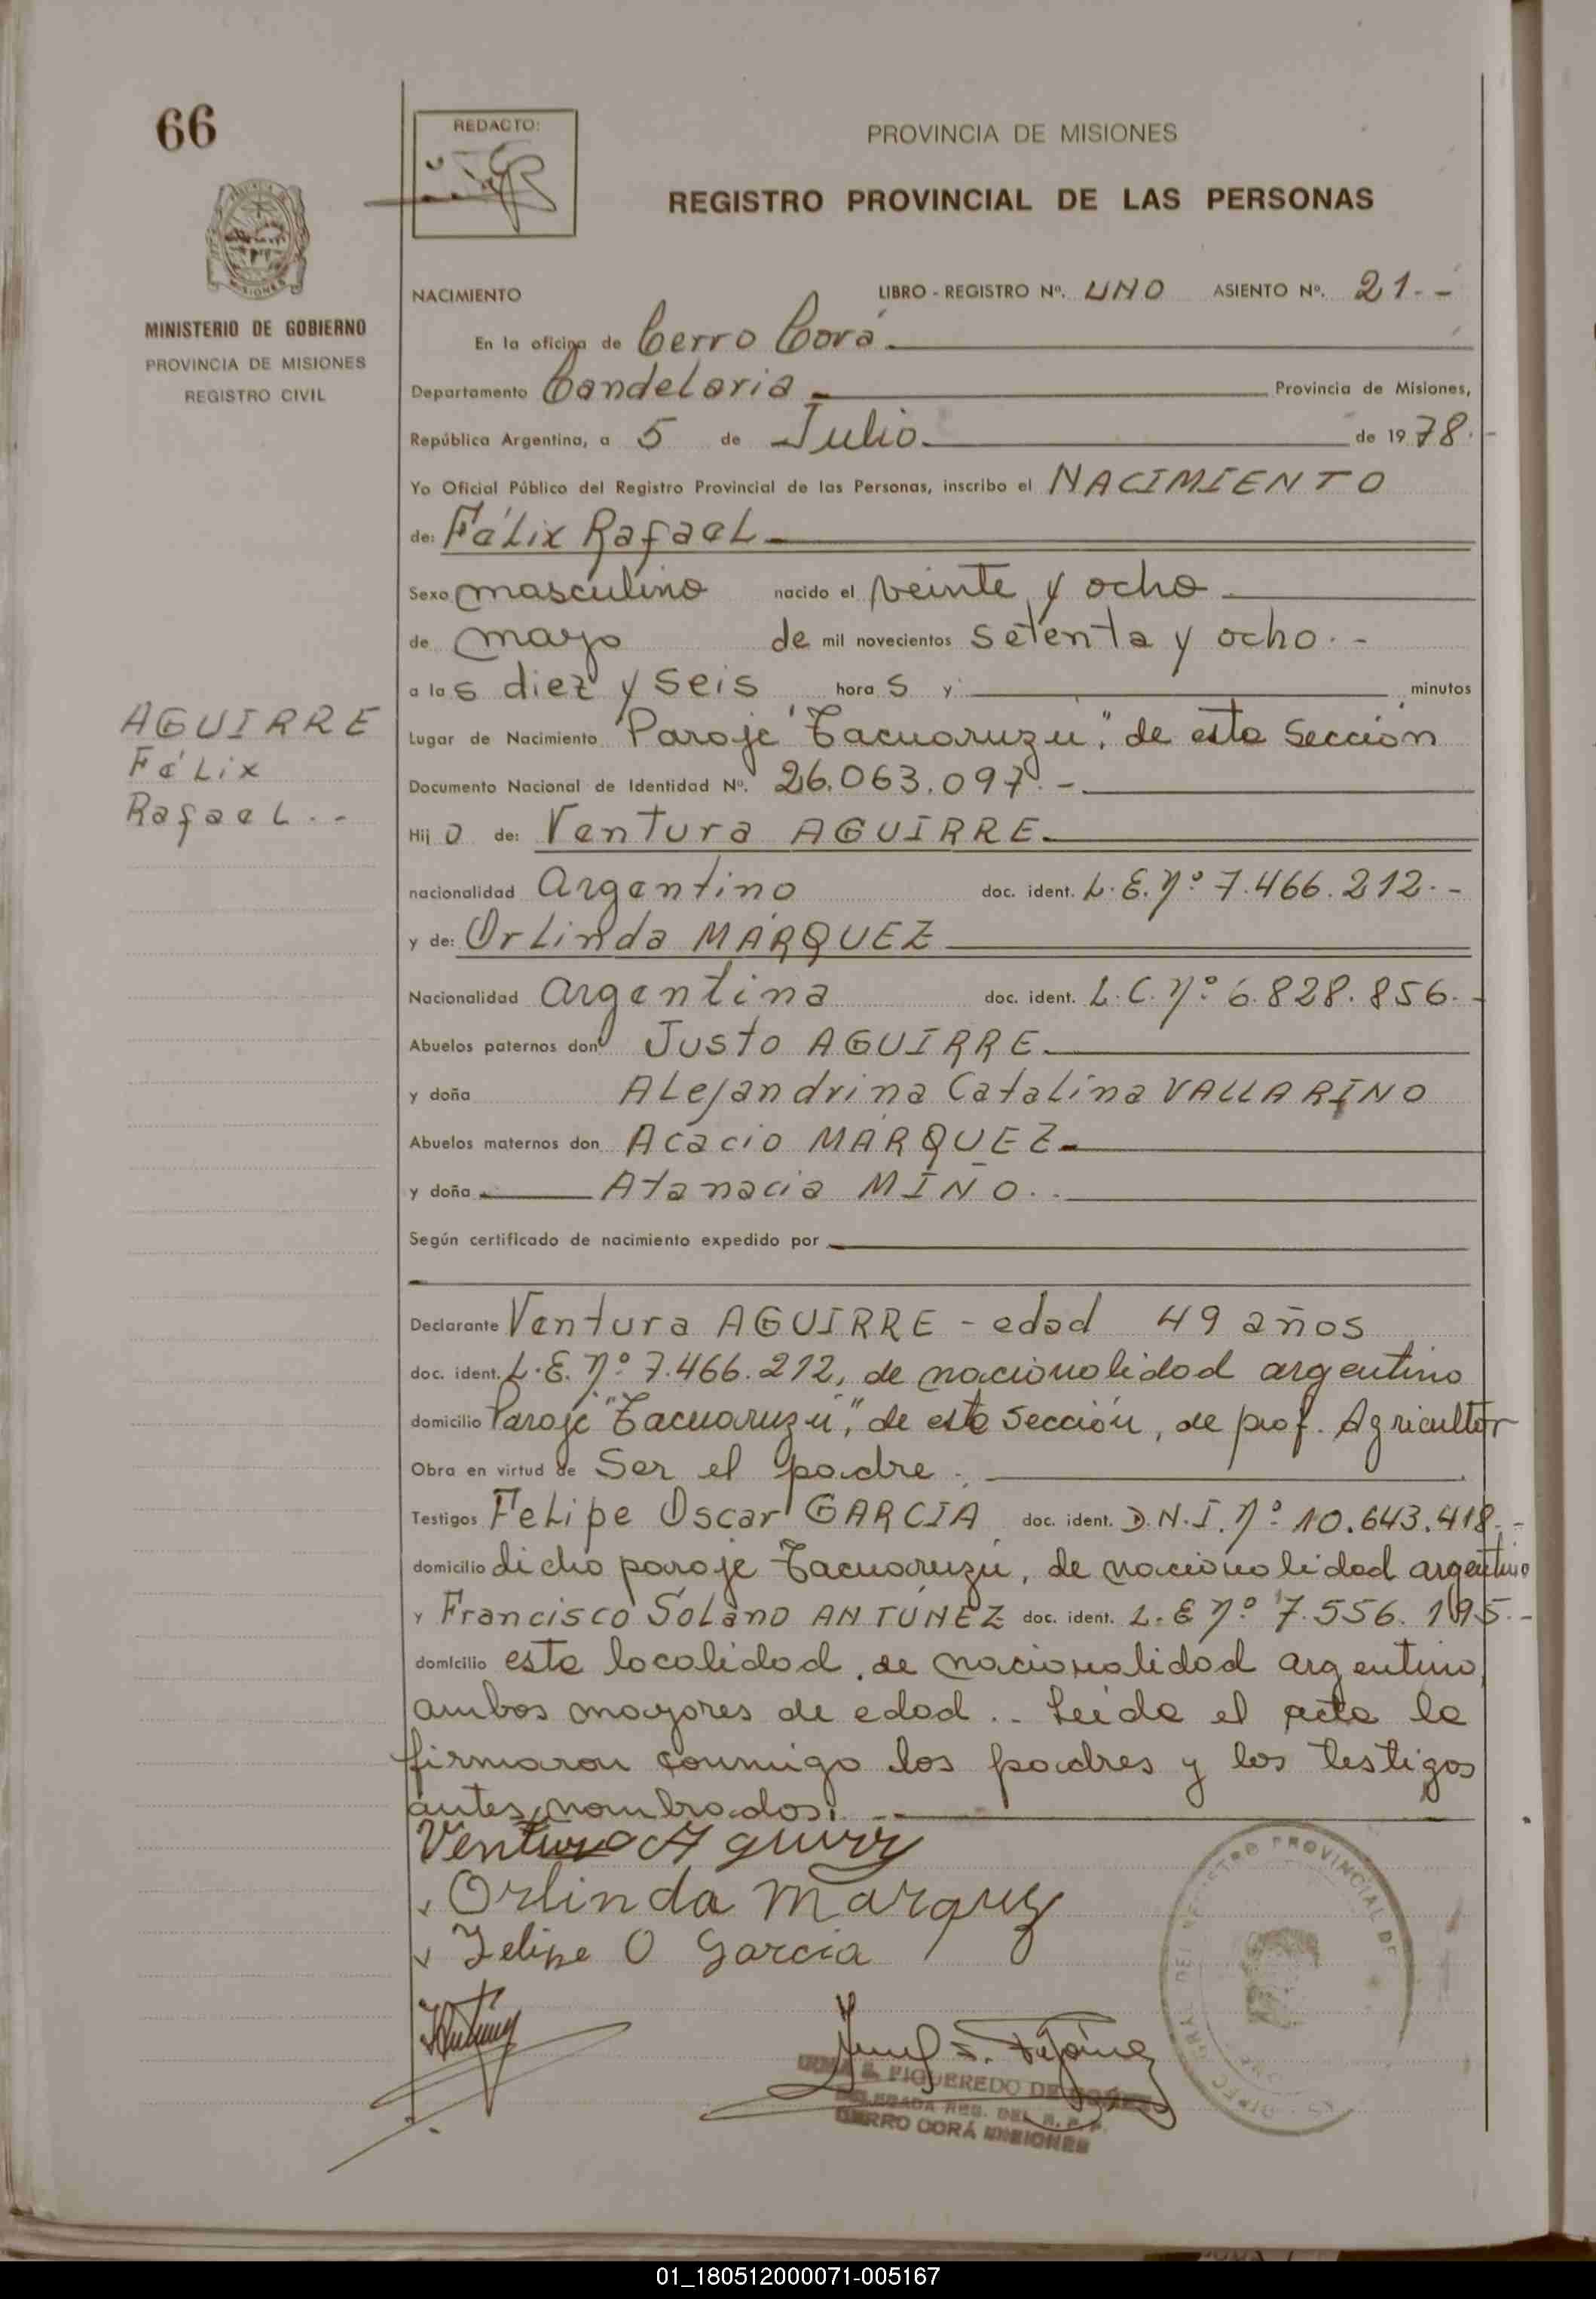 66
REDACTO:
PROVINCIA DE MISIONES
REGISTRO PROVINCIAL DE LAS PERSONAS
MISIONES
MINISTERIO DE GOBIERNO
PROVINCIA DE MISIONES
REGISTRO CIVIL
NACIMIENTO LIBRO - REGISTRO Nº. UNO ASIENTO Nº. 21.-
En la oficina de Cerro Corá
Departamento Candelaria Provincia de Misiones,
República Argentina, a 5 de Julio de 1978.-
Yo Oficial Público del Registro Provincial de las Personas, inscribo el NACIMIENTO
de: Félix Rafael
Sexo masculino nacido el veinte y ocho
de mayo de mil novecientos setenta y ocho.-
a las diez y seis horas y minutos
AGUIRRE
Félix
Rafael.-
Lugar de Nacimiento Paraje "Tacuaruzú", de esta Sección
Documento Nacional de Identidad Nº. 26.063.097.-
Hijo de: Ventura AGUIRRE
nacionalidad Argentino doc. ident. L.E. Nº 7.466.212.-
y de: Orlinda MÁRQUEZ
Nacionalidad Argentina doc. ident. L.C. Nº 6.828.856.-
Abuelos paternos don Justo AGUIRRE
y doña Alejandrina Catalina VALLARINO
Abuelos maternos don Acacio MARQUEZ
y doña Atanacia MIÑO..
Según certificado de nacimiento expedido por
Declarante Ventura AGUIRRE - edad 49 años
doc. ident. L.E. Nº 7.466.212, de nacionalidad argentino
domicilio Paraje "Tacuaruzú", de esta Sección, de prof. Agricultor
Obra en virtud de Ser el padre.
Testigos Felipe Oscar GARCÍA doc. ident. D.N.I. Nº 10.643.418.-
domicilio dicho paraje Tacuaruzú, de nacionalidad argentino
y Francisco Solano ANTÚNEZ doc. ident. L.E Nº 7.556.195.-
domicilio esta localidad, de nacionalidad argentino,
ambos mayores de edad.. Leída el acta la
firmaron conmigo los padres y los testigos
antes nombrados.
Ventura Aguirre
Orlinda Marquez
Felipe O Garcia
FIGUEREDO DE
DELEGADA REG. DEL R. P. P.
CERRO CORÁ MISIONES
REGISTRO PROVINCIAL DE
01_180512000071-005167